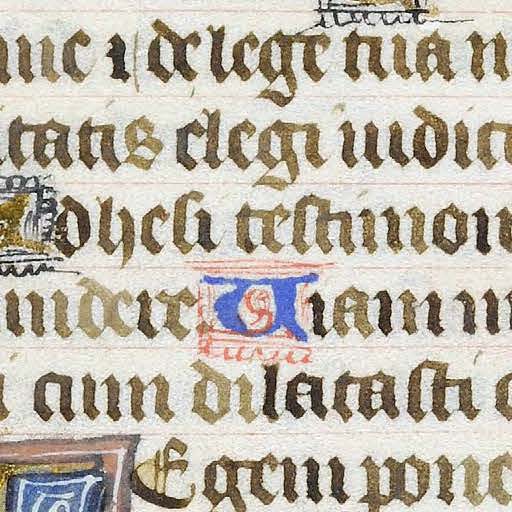 me ⁊ de lege tua m
itatis elegi iudici
dhesi testimoni
undere Uiam m
i cum dilatasti c
Egem pone